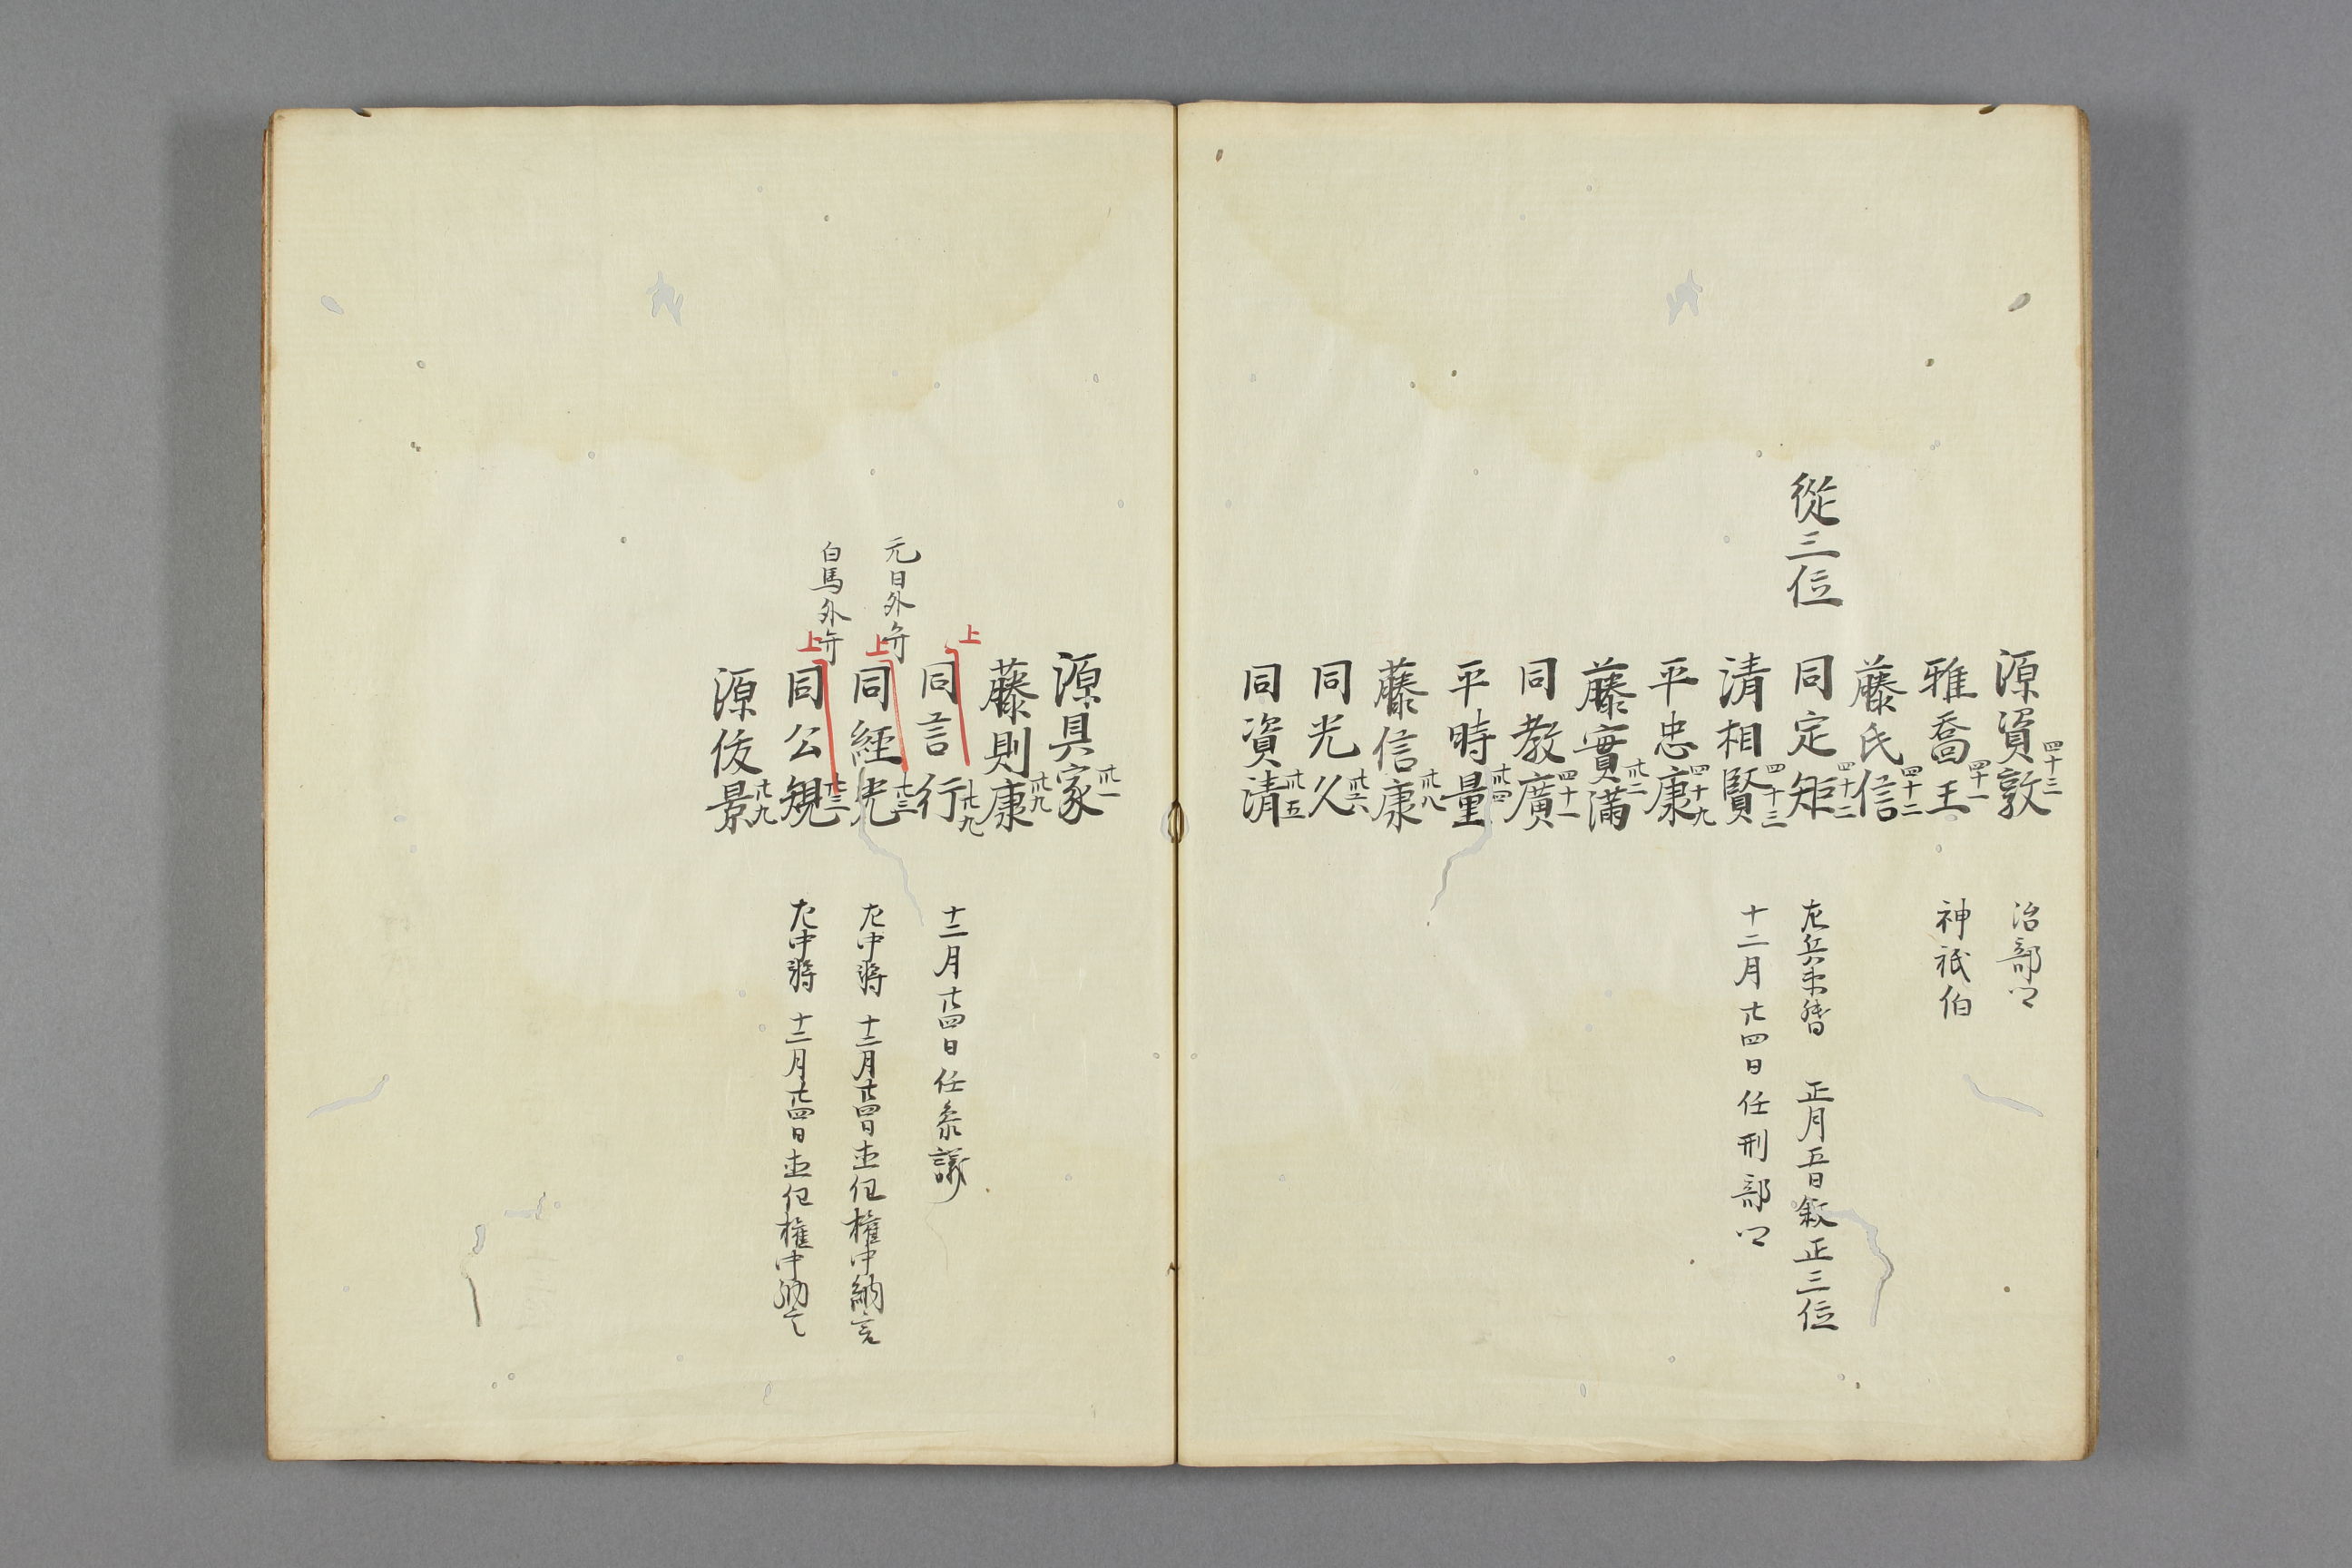 源資敦 四十三 治部卿
雅喬王 四十一 神祇伯
藤氏信 四十二
從三位
同定矩 四十二 左兵衛督 正月五日敘正三位
清相賢 四十三 十二月廿四日任刑部卿
平忠康 四十九
藤實滿 卅二
同教廣 四十一
平時量 卅四
藤信康 卅八
同光久 卅六
同資清 卅五
源具家 卅一
藤則康 卅九
上 同言行 廿九 十二月廿四日任參議
元日外弁
上 同經光 廿三 左中將 十二月廿四日並任權中納言
白馬外弁
上 同公規 廿三 左中將 十二月廿四日並任權中納言
源俊景 廿九